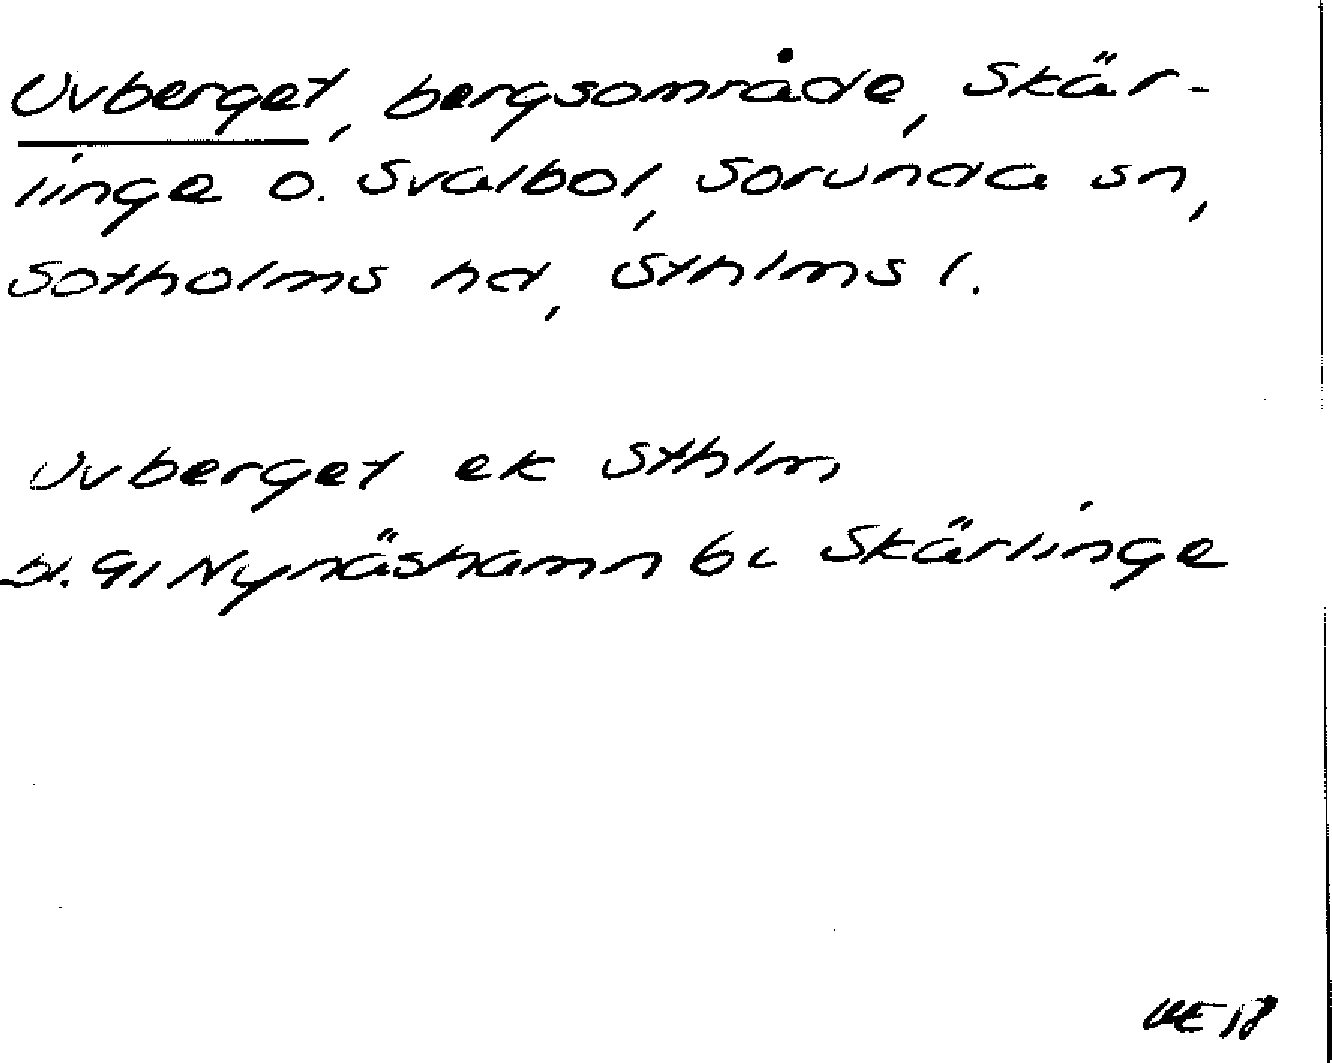 Uvberget, bergsområde, Skär-
linge o. Svalbol, Sorunda sn,
Sotholms hd, Sthlms l.
Uvberget ek Sthlm
bl. 91 Nynäshamn 6c Skärlinge